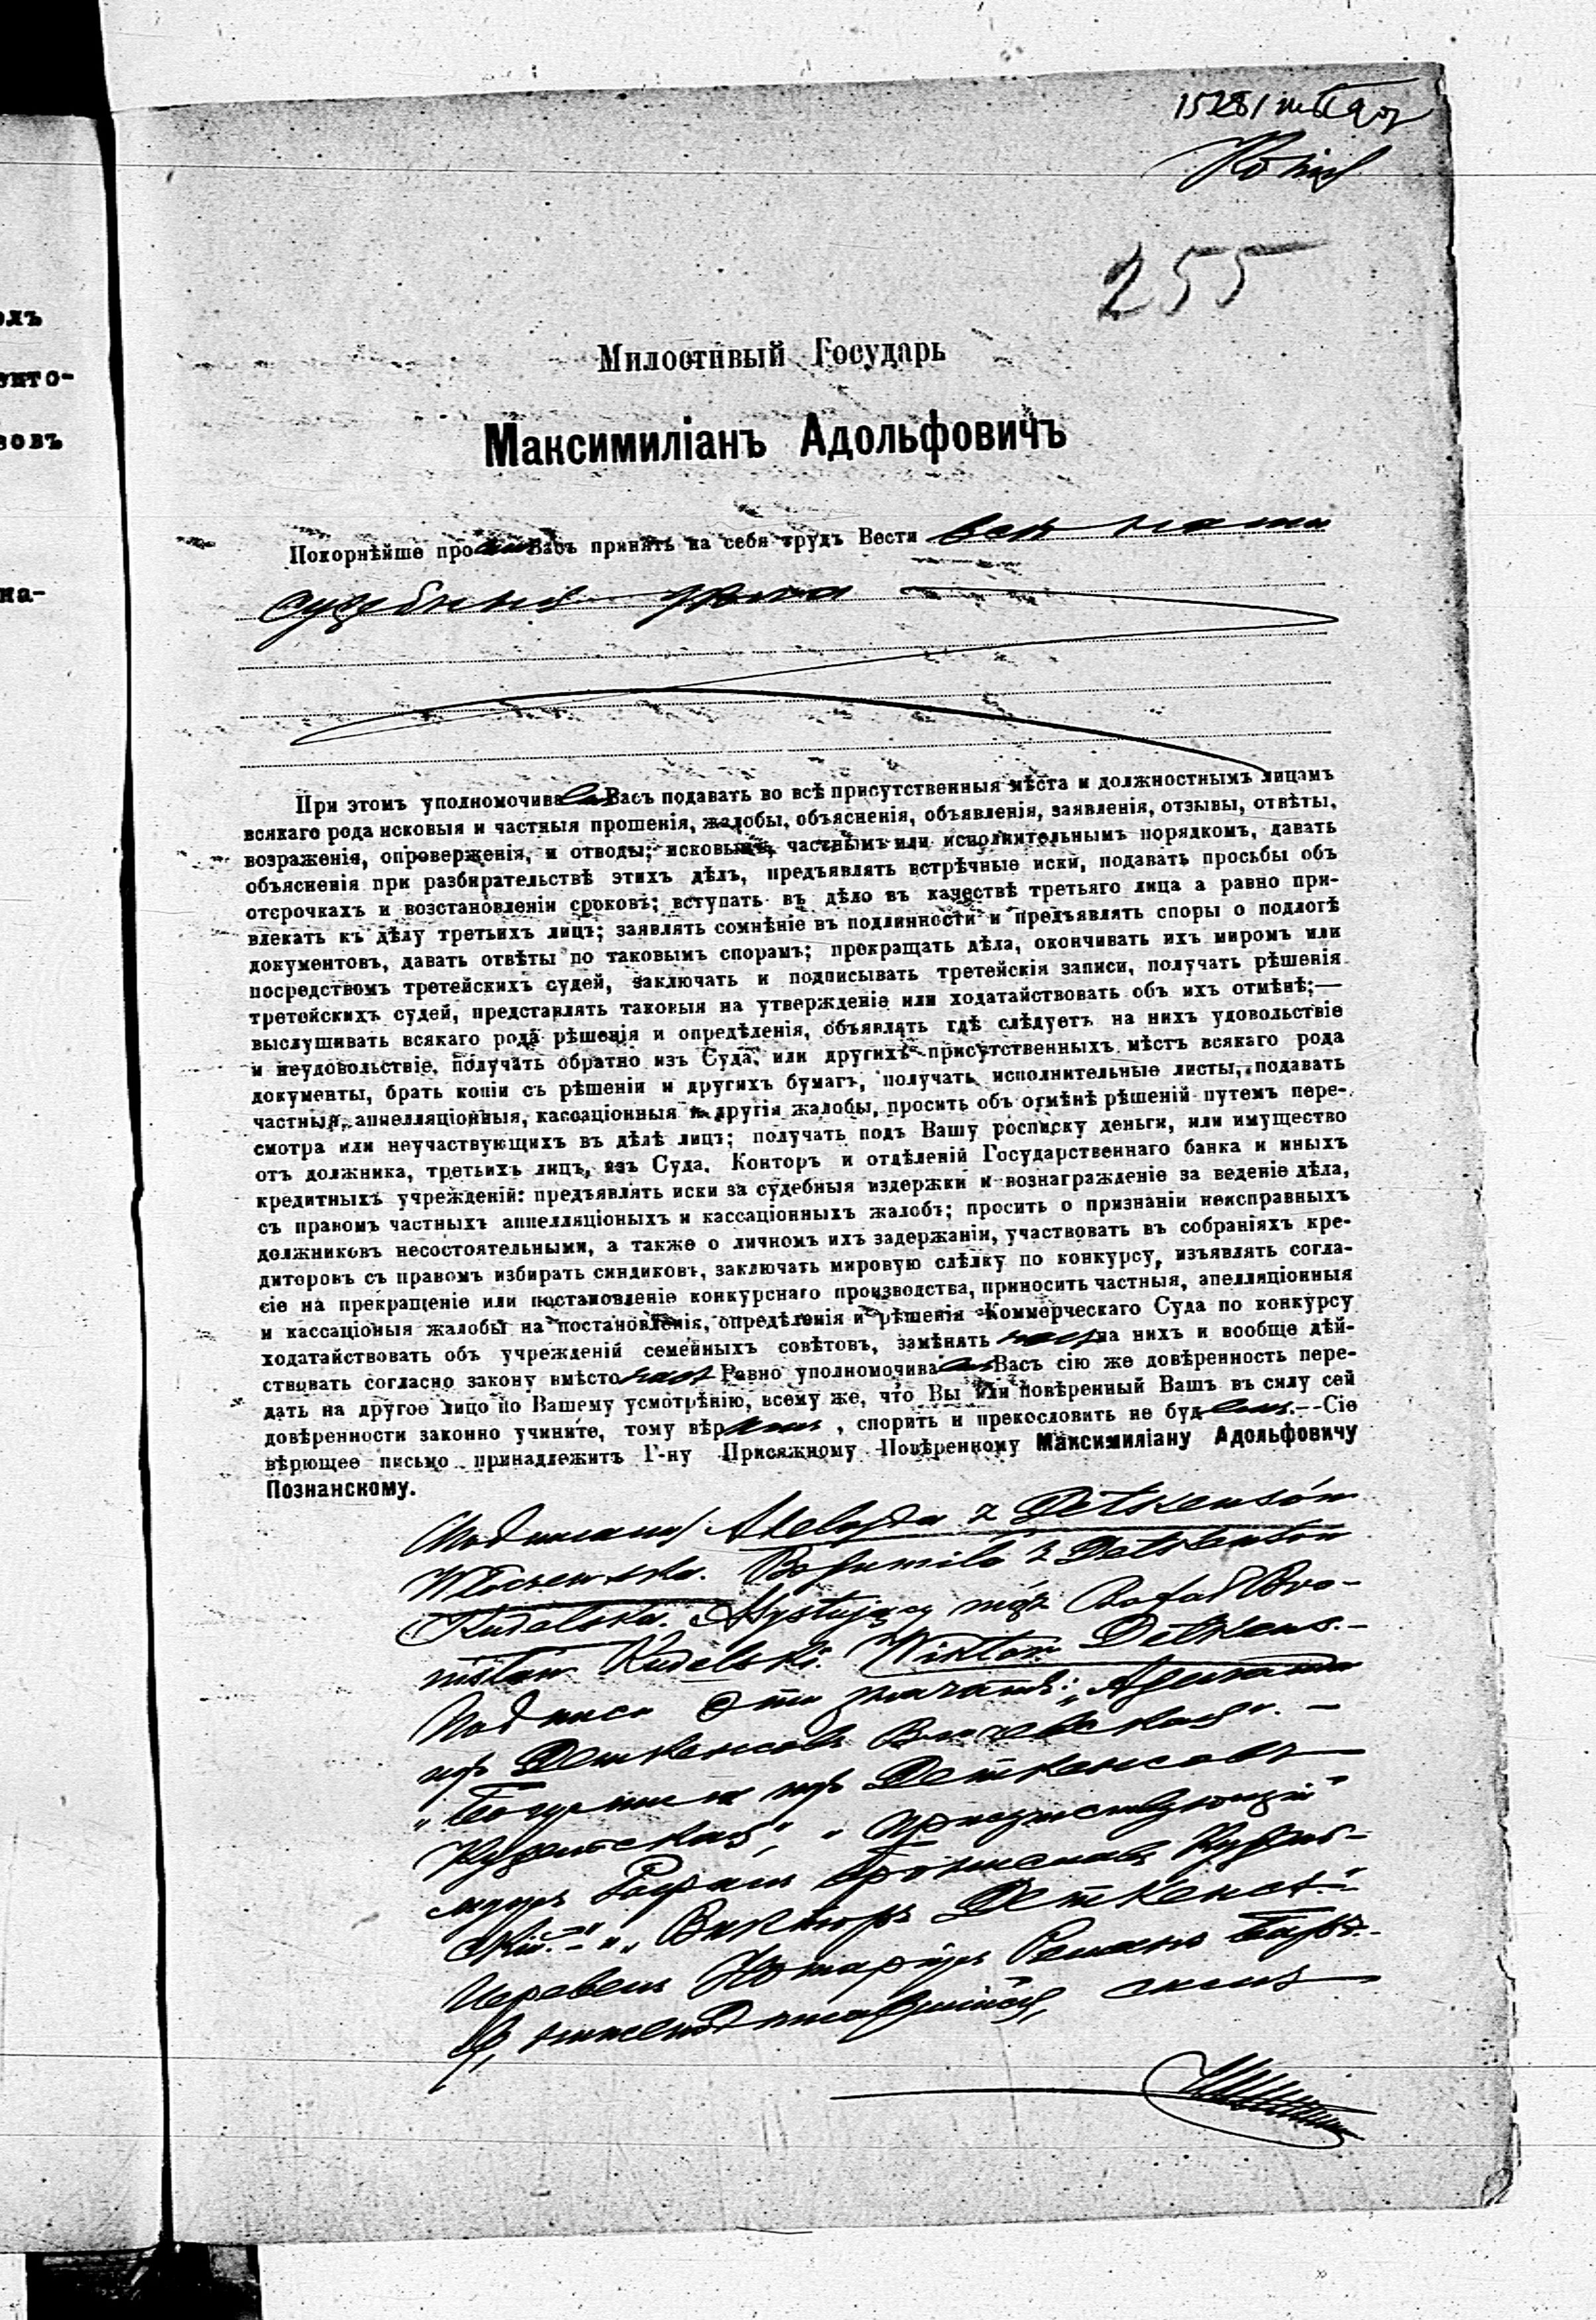 Копія
255
Милостивый Государь
Максимиліанъ Адольфовичъ
Покорнѣйше просимъ Васъ принять на себя трудъ Вести всѣ наши
судебныя дѣла
При этомъ уполномочиваемъ Васъ подавать во всѣ присутственныя мѣста и должностнымъ лицамъ
всякаго рода исковыя и частныя прошенія, жалобы, объясненія, объявленія, заявленія, отзывы, отвѣты,
возраженія, опроверженія, и отводы; исковымъ, частнымъ или исполнительнымъ порядкомъ, давать
объясненія при разбирательствѣ этихъ дѣлъ, предъявлять встрѣчные иски, подавать просьбы объ
отсрочкахъ и возстановленіи сроковъ; вступать въ дѣло въ качествѣ третьяго лица а равно при-
влекать къ дѣлу третьихъ лицъ; заявлять сомнѣніе въ подлинности и предъявлять споры о подлогѣ
документовъ, давать отвѣты по таковымъ спорамъ; прекращать дѣла, окончивать ихъ миромъ или
посредствомъ третейскихъ судей, заключать и подписывать третейскія записи, получать рѣшенія
третейскихъ судей, представлять таковыя на утвержденіе или ходатайствовать объ ихъ отмѣнѣ;—
выслушивать всякаго рода рѣшенія и опредѣленія, объявлять гдѣ слѣдуетъ на нихъ удовольствіе
и неудовольствіе, получать обратно изъ Суда, или другихъ присутственныхъ мѣстъ всякаго рода
документы, брать копіи съ рѣшеніи и другихъ бумагъ, получать исполнительные листы, подавать
частныя, аппелляціонныя, кассаціонныя и другія жалобы, просить объ отмѣнѣ рѣшеній путемъ пере-
смотра или неучаствующихъ въ дѣлѣ лицъ; получать подъ Вашу росписку деньги, или имущество
отъ должника, третьихъ лицъ, изъ Суда, Конторъ и отдѣленій Государственнаго банка и иныхъ
кредитныхъ учрежденій: предъявлять иски за судебныя издержки и вознагражденіе за веденіе дѣла,
съ правомъ частныхъ аппелляціоныхъ и кассаціонныхъ жалобъ; просить о признаніи неисправныхъ
должниковъ несостоятельными, а также о личномъ ихъ задержаніи, участвовать въ собраніяхъ кре-
диторовъ съ правомъ избирать синдиковъ, заключать мировую слѣлку по конкурсу, изъявлять согла-
сіе на прекращеніе или постановленіе конкурснаго производства, приносить частныя, апелляціонныя
и кассаціоныя жалобы на постановленія, опредѣленія и рѣшенія Коммерческаго Суда по конкурсу
ходатайствовать объ учрежденій семейныхъ совѣтовъ, замѣнять насъ на нихъ и вообще дѣй-
ствовать согласно закону вмѣсто насъ Равно уполномочиваемъ Васъ сію же довѣренность пере-
дать на другое лицо по Вашему усмотрѣнію, всему же, что Вы или повѣренный Вашъ въ силу сей
довѣренности законно учините, тому вѣримъ, спорить и прекословить не будемъ.—Сіе
вѣрющее письмо принадлежитъ Г-ну Присяжному Повѣренному Максимиліану Адольфовичу
Познанскому.
Подписано/ Adelajda z Detkensów
Włoczewska. Bogumiła z Detkensów
Kudelska. Asystujący mąż Rafał Bro-
nisław Kudelski. Wiktor Detkens.—
Подписи эти значатъ: „Аделаида
изъ Деткенсовъ Влочевская".—
„Богумила изъ Деткенсовъ
Кудельская", „присутствующій
мужъ Рафалъ Брониславъ Кудель-
скій".— „Викторъ Деткенсъ".—
Перевелъ Нотаріусъ
Я, нижеподписавшійся,